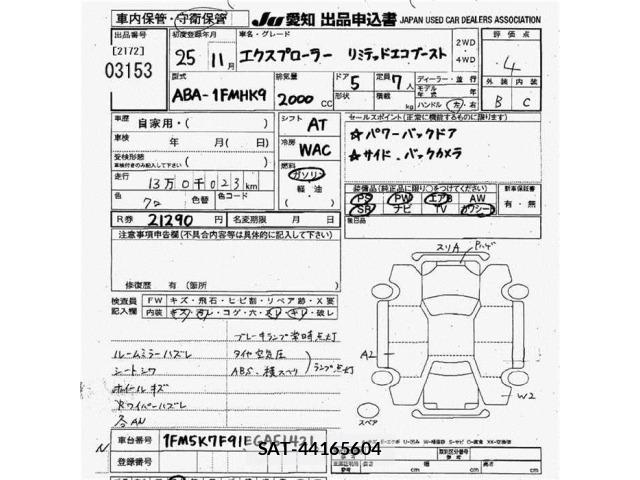 車内保管・守衛保管
Ju 愛知 出品申込書 JAPAN USED CAR DEALERS ASSOCIATION
出品番号
[2172]
03153
初度登録年月
25 年 11 月
車名・グレード
エクスプローラー リミテッドエコブースト
2WD
・
4WD
評点
4
型式
ABA-1FMHK9
排気量
2000 CC
ドア
5
形状
定員
7 人
積載
kg
ディーラー・並行
モデル年式 年
ハンドル 左・右
外装 内装
B C
車歴
自家用・( )
車検
年 月( 日)
受検形態
車検付きのみ記入して下さい
( )
走行
13万0千023km
色
クロ
色替
色コード
シフト
AT
冷房
WAC
燃料
ガソリン
軽油
( )
セールスポイント(正常に機能するものに限ります)
☆パワーバックドア
☆サイド.バックカメラ
装備品(純正品に限り○をつけてください)
PS PW エアB AW
SR ナビ TV カワシート
新車保証書
有・無
後日品
R券 21290 円
名変期限 月 日
注意事項申告欄(不具合内容等は具体的に記入して下さい)
修復歴 有 (箇所 )
検査員記入欄
FW キズ・飛石・ヒビ割・リペア跡・X要
内装 キズ・汚レ・コゲ・穴・スレ・キレ・破レ
ブレーキランプ常時点灯
ルームミラーハズレ タイヤ空気圧
シートシワ ABS.横スベリ ランプ点灯
ホイールキズ
Rワイパーハズレ
スリA
A2
W2
スペア
車台番号 1FM5K7F91EGA51421
登録番号
SAT-44165604